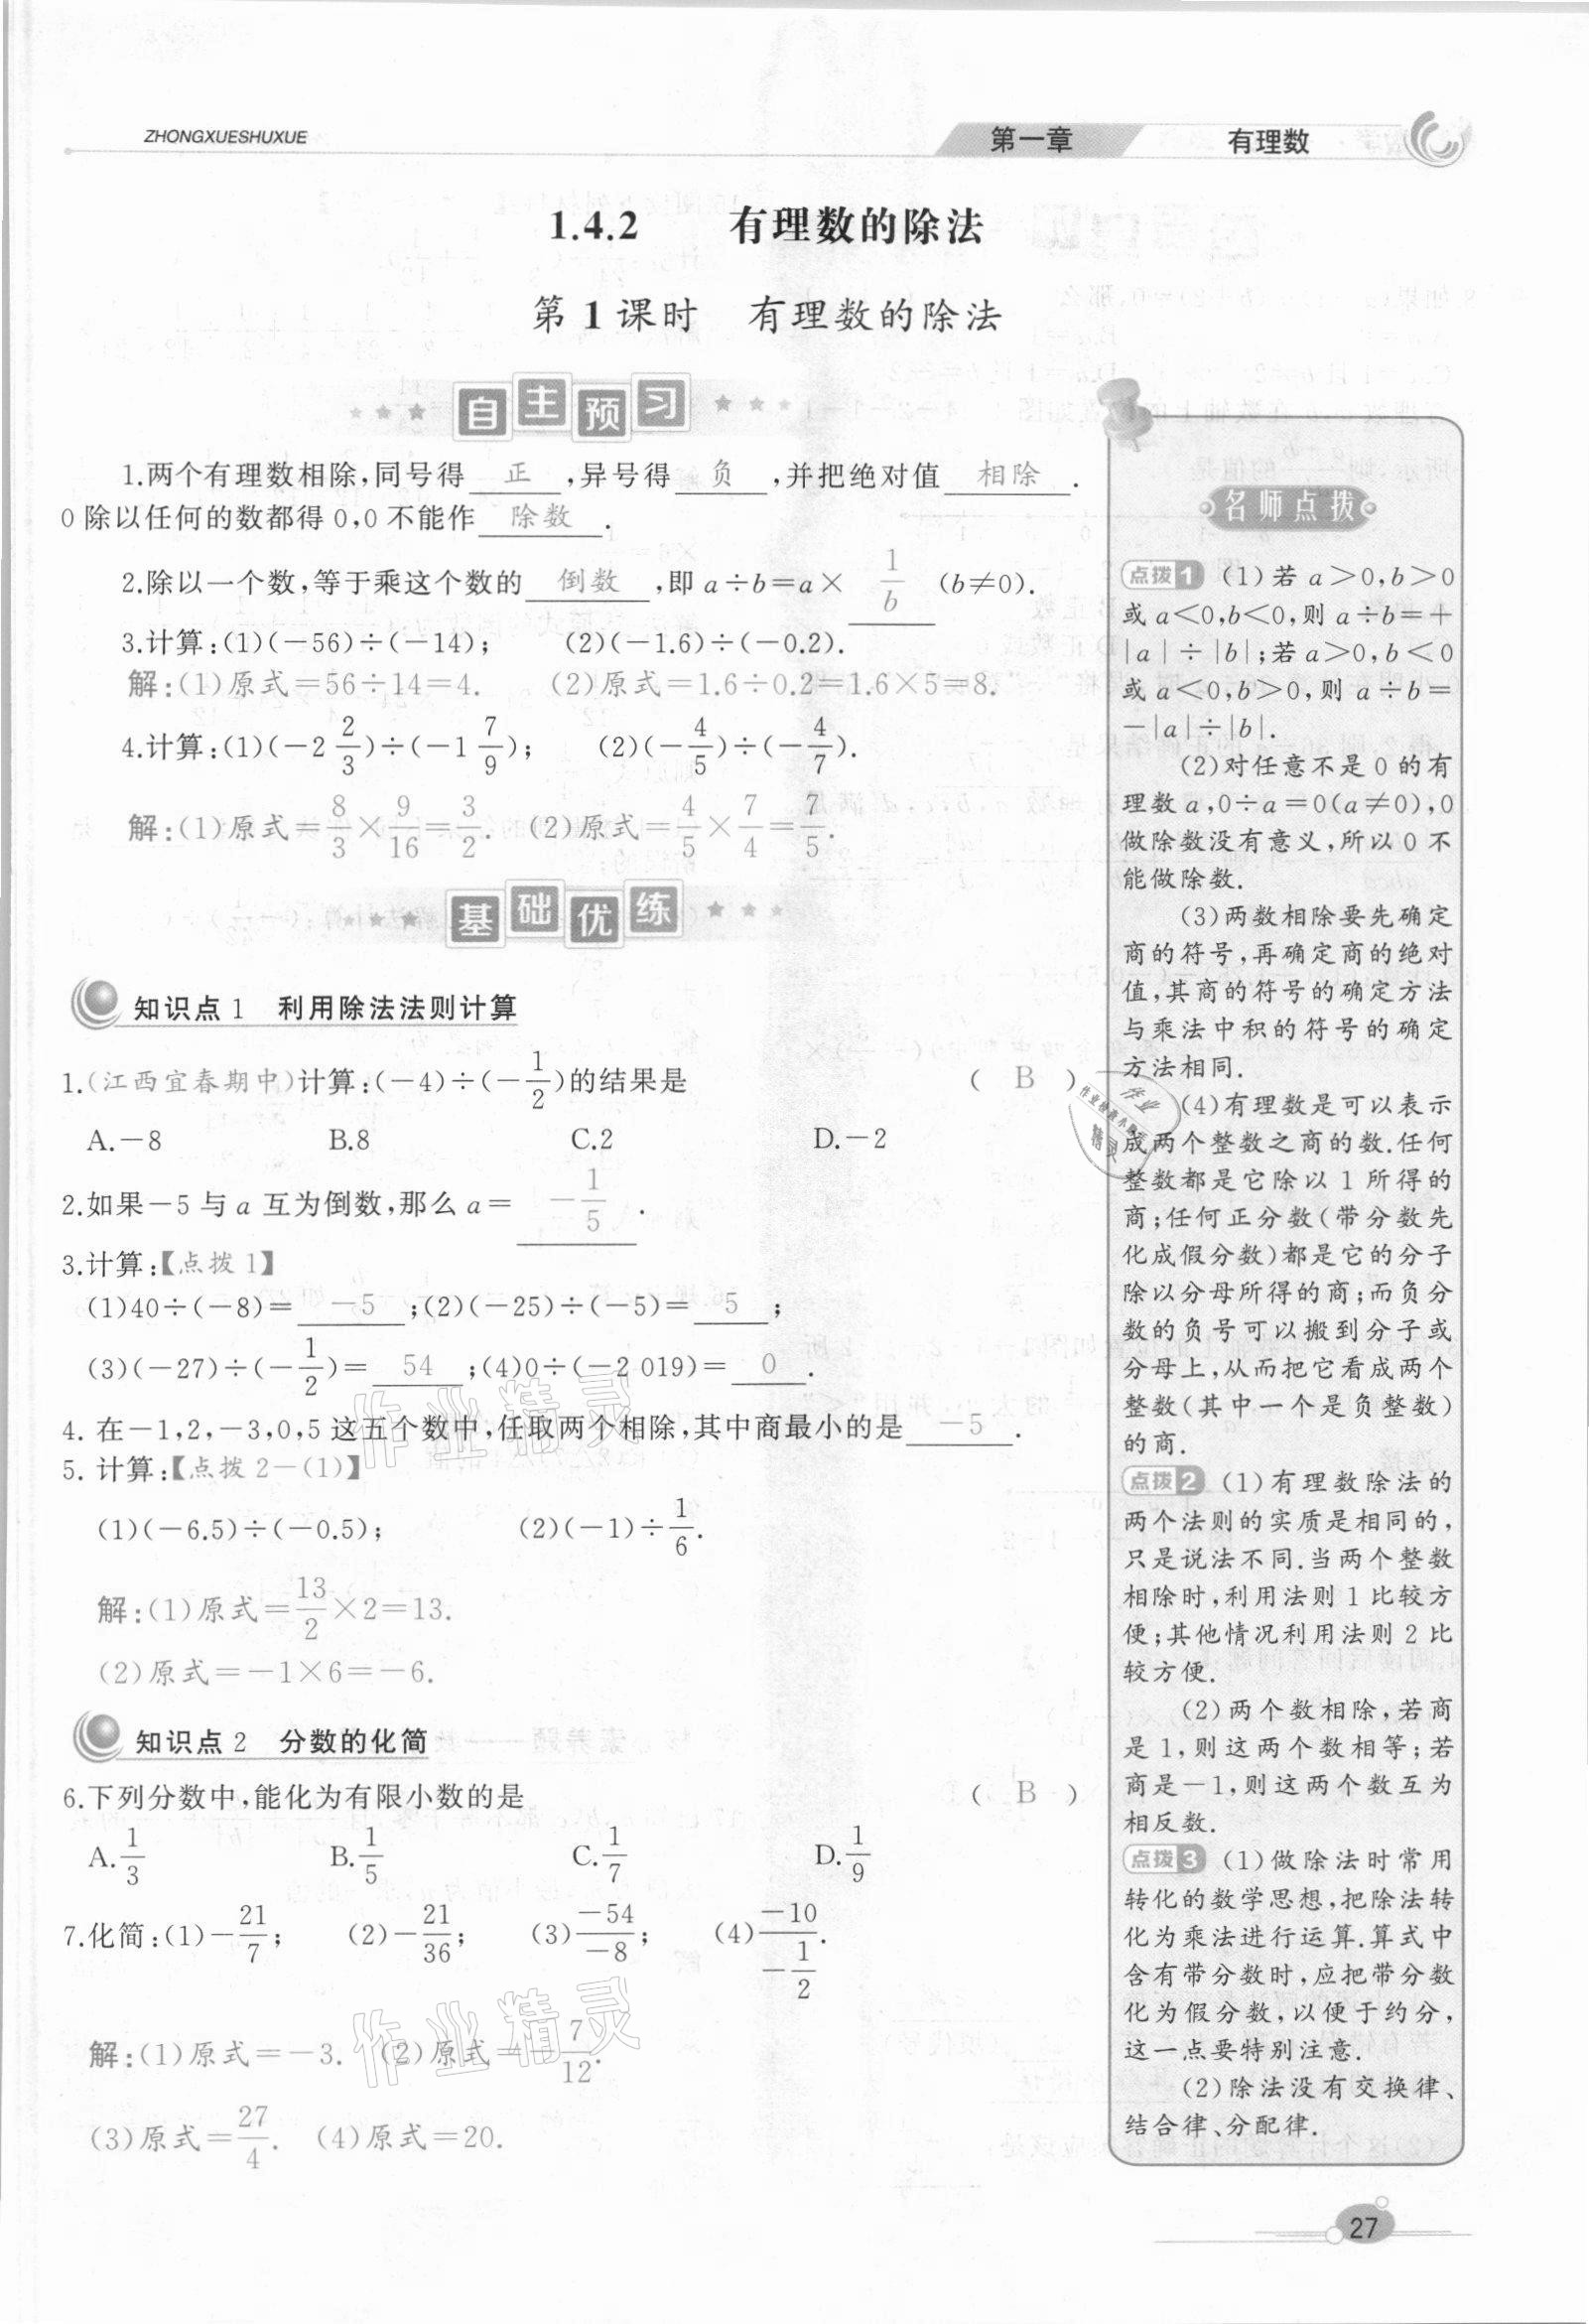 ZHONGXUESHUXUE
第一章 有理数
1.4.2 有理数的除法
第1课时 有理数的除法
自主预习
1.两个有理数相除,同号得 正 ,异号得 负 ,并把绝对值 相除 .
0除以任何的数都得0,0不能作 除数 .
2.除以一个数,等于乘这个数的 倒数 ,即a÷b=a× 1/b (b≠0).
3.计算:(1)(-56)÷(-14); (2)(-1.6)÷(-0.2).
解:(1)原式=56÷14=4. (2)原式=1.6÷0.2=1.6×5=8.
4.计算:(1)(-2 2/3)÷(-1 7/9); (2)(-4/5)÷(-4/7).
解:(1)原式=8/3×9/16=3/2. (2)原式=4/5×7/4=7/5.
基础优练
知识点1 利用除法法则计算
1.(江西宜春期中)计算:(-4)÷(-1/2)的结果是 ( B )
A.-8 B.8 C.2 D.-2
2.如果-5与a互为倒数,那么a= -1/5 .
3.计算:【点拨1】
(1)40÷(-8)= -5 ;(2)(-25)÷(-5)= 5 ;
(3)(-27)÷(-1/2)= 54 ;(4)0÷(-2 019)= 0 .
4. 在-1,2,-3,0,5这五个数中,任取两个相除,其中商最小的是 -5 .
5. 计算:【点拨2-(1)】
(1)(-6.5)÷(-0.5); (2)(-1)÷1/6.
解:(1)原式=13/2×2=13.
(2)原式=-1×6=-6.
知识点2 分数的化简
6.下列分数中,能化为有限小数的是 ( B )
A.1/3 B.1/5 C.1/7 D.1/9
7.化简:(1)-21/7; (2)-21/36; (3)-54/-8; (4)-10/-1/2.
解:(1)原式=-3. (2)原式=-7/12.
(3)原式=27/4. (4)原式=20.
名师点拨
点拨1 (1)若a>0,b>0
或a<0,b<0,则a÷b=+
|a|÷|b|;若a>0,b<0
或a<0,b>0,则a÷b=
-|a|÷|b|.
(2)对任意不是0的有
理数a,0÷a=0(a≠0),0
做除数没有意义,所以0不
能做除数.
(3)两数相除要先确定
商的符号,再确定商的绝对
值,其商的符号的确定方法
与乘法中积的符号的确定
方法相同.
(4)有理数是可以表示
成两个整数之商的数.任何
整数都是它除以1所得的
商;任何正分数(带分数先
化成假分数)都是它的分子
除以分母所得的商;而负分
数的负号可以搬到分子或
分母上,从而把它看成两个
整数(其中一个是负整数)
的商.
点拨2 (1)有理数除法的
两个法则的实质是相同的,
只是说法不同.当两个整数
相除时,利用法则1比较方
便;其他情况利用法则2比
较方便.
(2)两个数相除,若商
是1,则这两个数相等;若
商是-1,则这两个数互为
相反数.
点拨3 (1)做除法时常用
转化的数学思想,把除法转
化为乘法进行运算.算式中
含有带分数时,应把带分数
化为假分数,以便于约分,
这一点要特别注意.
(2)除法没有交换律、
结合律、分配律.
作业精灵
作业精灵
27